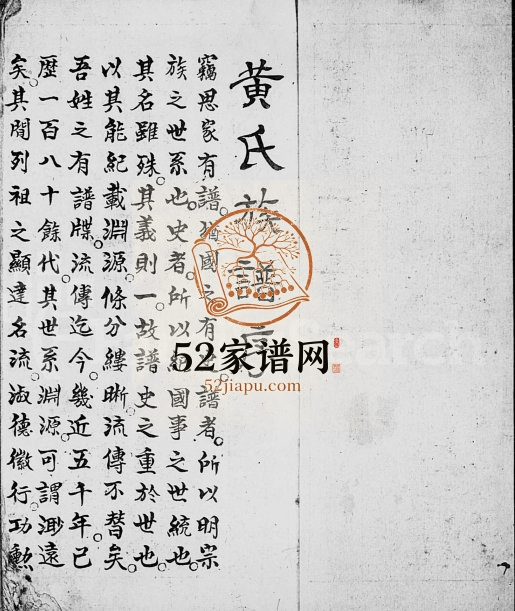 黄氏族譜序
竊思家有譜。猶國之有譜者。所以明宗
族之世系也。史者。所以國事之世統也。
其名雖殊。其義則一。故譜史之重於世也。
以其能紀載淵源。條分縷晰。流傳不替矣。
吾姓之有譜牒。流傳迄今。幾近五千年。已
歷一百八十餘代。其世系淵源。可謂渺遠
矣。其間列祖之顯達名流。淑德徽行。功勲
52家谱网
52jiapu.com